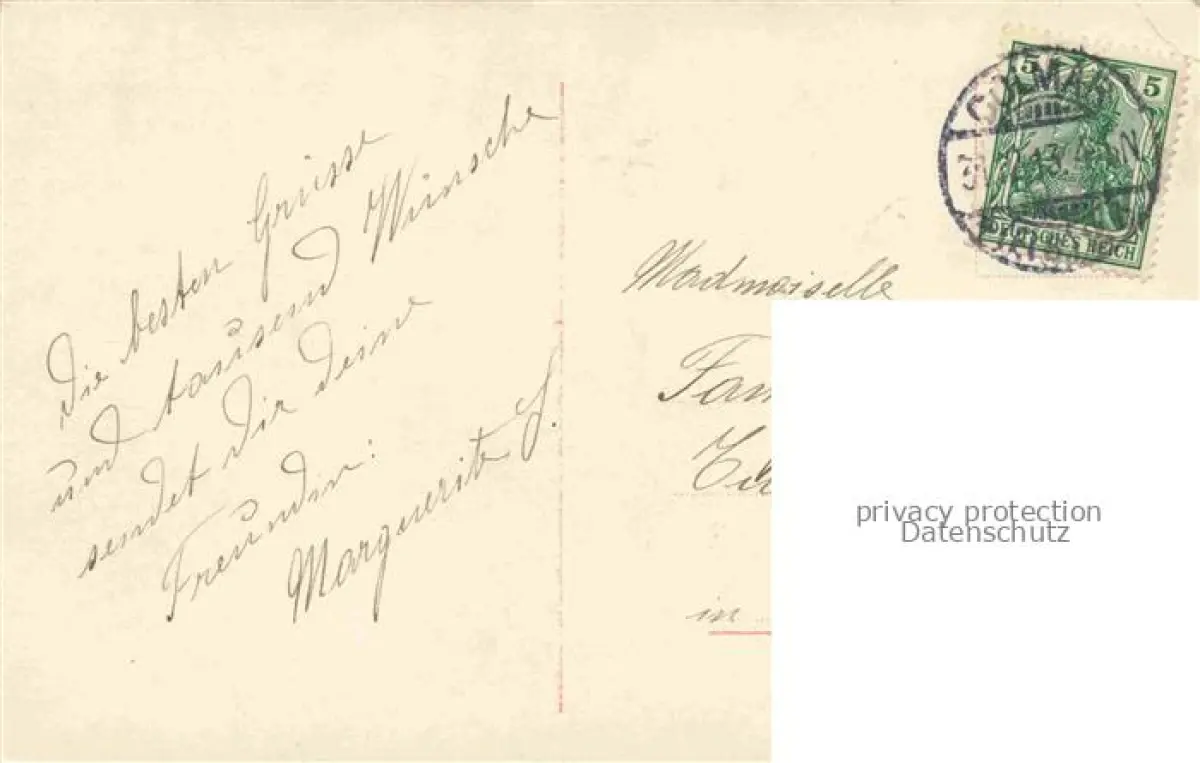 Die besten Grüsse
und tausend Wünsche
sendet dir deine
Freundin:
Marguerite S.
Madmoiselle
in
5 5
DEUTSCHES REICH
COLMAR
privacy protection
Datenschutz